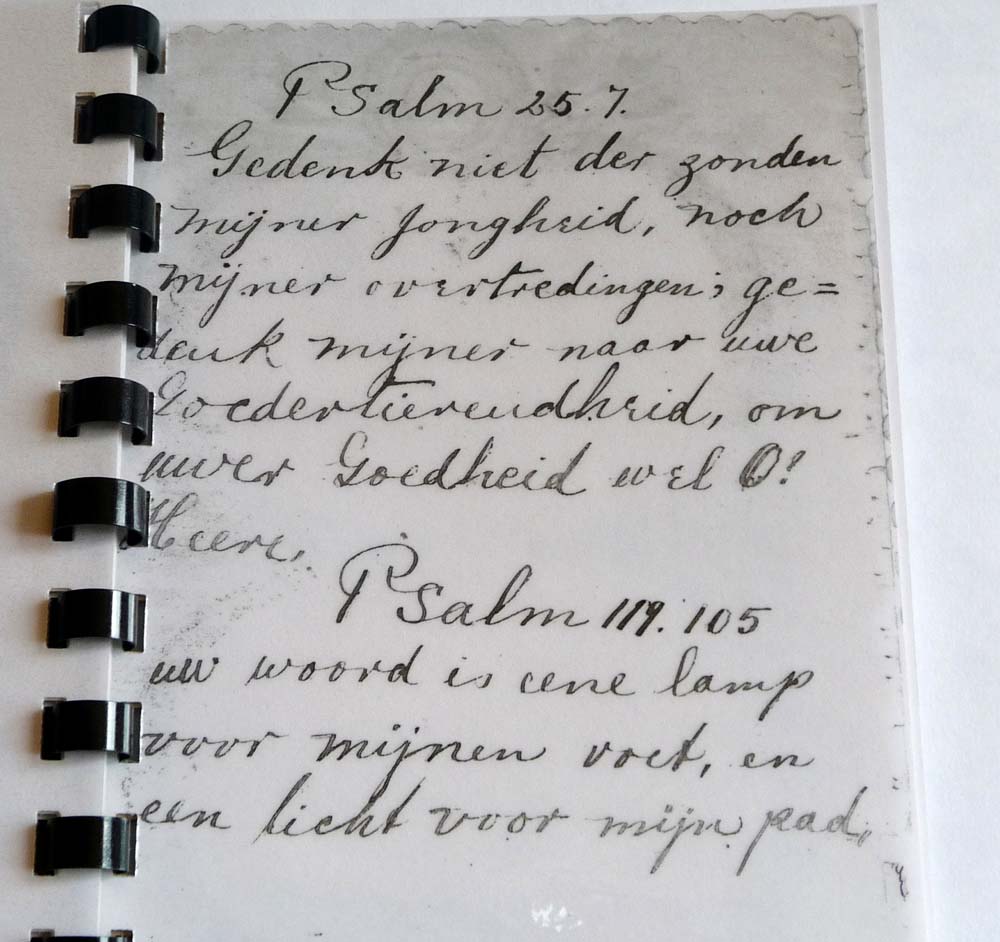 Psalm 25.7.
Gedenk niet der zonden
mijner Jongheid, noch
mijner overtredingen; ge=
denk mijner naar uwe
Goedertierendheid, om
uwer Goedheid wel O!
Heere.
Psalm 119.105
uw woord is eene lamp
voor mijnen voet, en
een licht voor mijn pad.